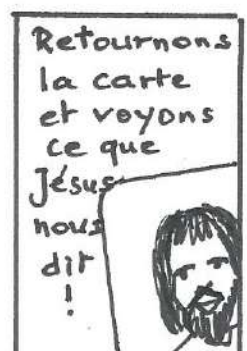 Retournons
la carte
et voyons
ce que
Jésus
nous
dit
!